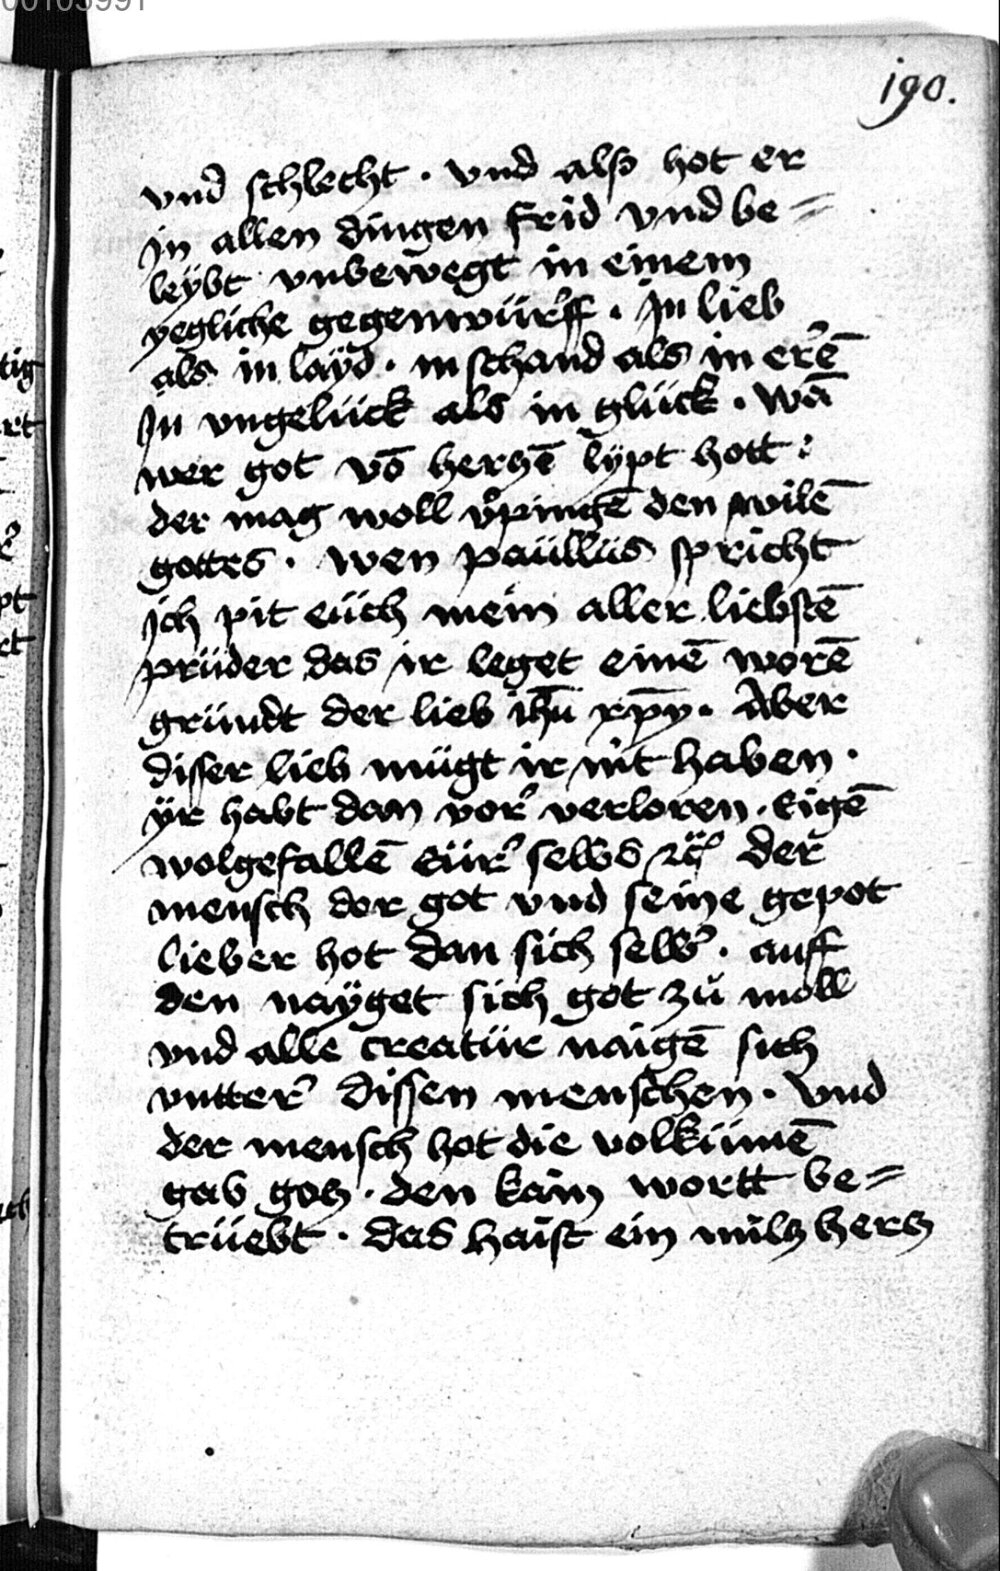 190.
vnd schlecht · vnd also hot er
in allen dingen frid vnd be=
leÿbt vnbewegt in einem
yegliche gegenwürff · In lieb
als in laÿd · in schand als in er̉ē
In vngelück als in glück · wā
wer got vō herczē lÿpt hott :
der mag woll den wilē
gottes · wen paüllüs spricht
Ich pit eüch mein aller liebstē
prüder das ir leget einē worē
gründt der lieb ihū xp̄y · Aber
disser lieb mügt ir nit haben ·
ÿr habt dan vor verloren · Eigē
wolgefallē eür selbs der
mensch der got vnd seine gepot
lieber hot dan sich selbs · auff
den naÿget sich got zů moll
vnd alle creatür naigē sich
vntter dissen menschen · Vnd
der mensch hot die volkümē
gab gocz · den kain wortt be=
trüebt · das haist ein milcz hercz